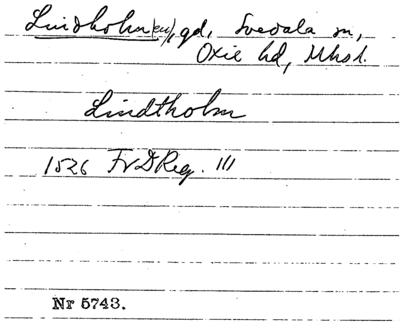 Lindholm(en), gd, Svedala sn,
Oxie hd, Mhsl.
Lindtholm
1526 Fr D Reg. 111
Nr 5743.